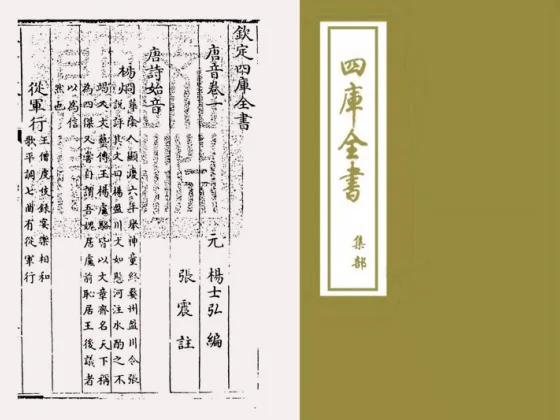 欽定四庫全書
唐音卷一
元 楊士弘 編
張震 註
唐詩始音
楊烱華隂人顯慶六年舉神童終婺州盈川令張
說評其文曰楊盈川文如懸河注水酌之不
竭又文藝傳王楊盧駱皆以文章齊名天下稱
為四傑又嘗自謂吾媿居盧前恥居王後議者
以為信
然也
從軍行王僧虔技録宴樂相和
歌平調七曲有從軍行
四庫全書
集部